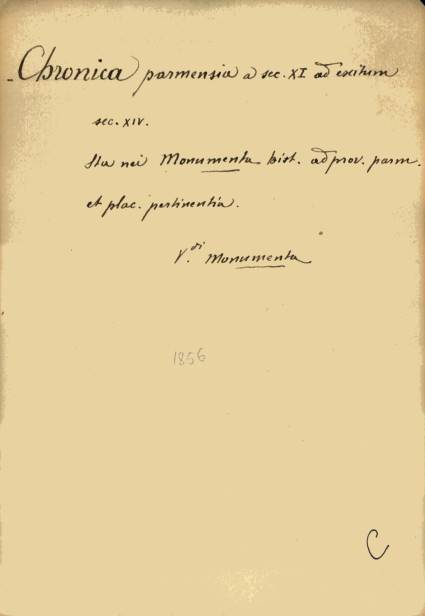 Chronica parmensia a sec. XI ad exitum
sec. XIV.
Sta nei Monumenta hist. ad prov. parm.
et plac. pertinentia.
V.di Monumenta
1856
C